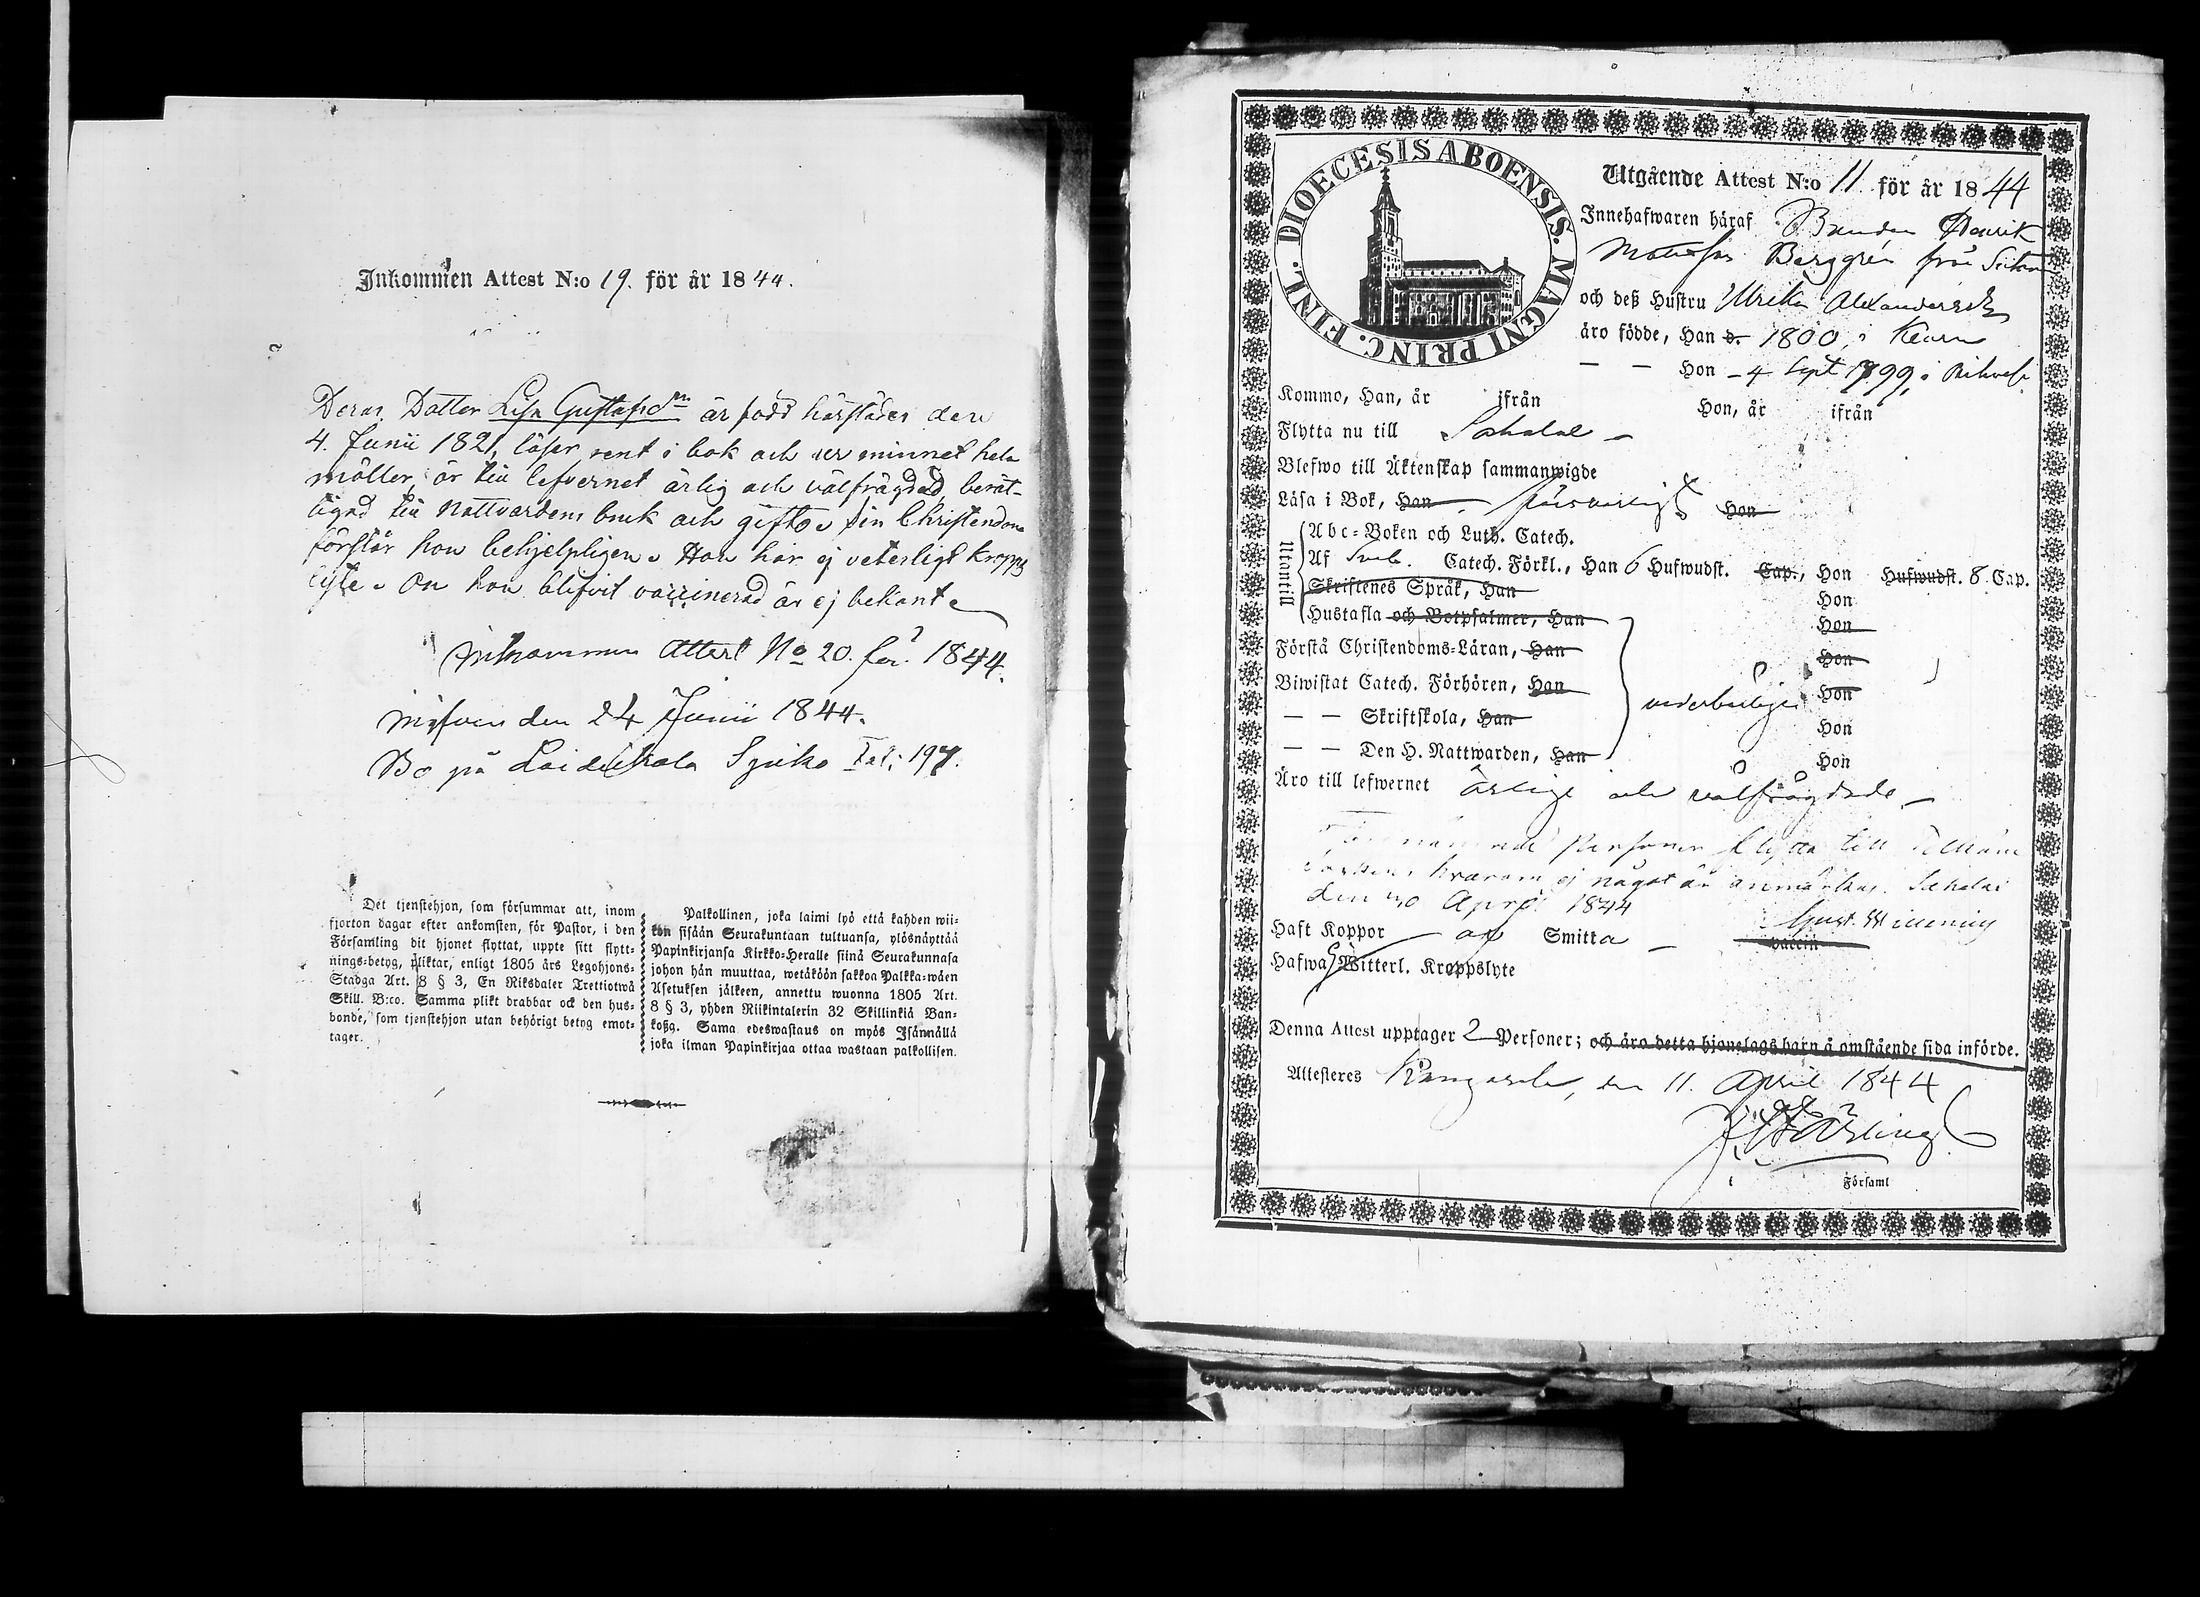 Inkommen Attest N:o 19. för år 1844.
Deras Dotter Lisa Gustafsdr är född härstädes den
4. Junii 1821, läser rent i bok och ur minnet hela
möller, är till lefvernet ärlig och välfrägdad, berät-
tigad till Nattvardens bruk och gifto, sin Christendom
förstår hon behjelpligen. Hon har ej veterligt kropps
lyte. Om hon blifvit vaccinerad är ej bekant.
Inkommen Attest No 20. för 1844.
den 24 Junii 1844.
Bo på Sjuko Fol: 197.
Det tjenstehjon, som försummar att, inom
fjorton dagar efter ankomsten, för Pastor, i den
Församling dit hjonet flyttat, uppte sitt flytt-
nings-betyg, pliktar, enligt 1805 års Legohjons-
Stadga Art. 8 § 3, En Riksdaler Trettiotwå
Skill. B:co. Samma plikt drabbar ock den hus-
bonde, som tjenstehjon utan behörigt betyg emot-
tager.
Palkollinen, joka laimi lyö että kahden wii-
kon sisään Seurakuntaan tultuansa, ylösnäyttää
Papinkirjansa Kirkko-Heralle siinä Seurakunnasa
johon hän muuttaa, wetäköön sakkoa Palkka-wäen
Asetuksen jälkeen, annettu wuonna 1805 Art.
8 § 3, yhden Riikintalerin 32 Skillinkiä Ban-
koßg. Sama edeswastaus on myös Isännällä
joka ilman Papinkirjaa ottaa wastaan palkollisen.
DIOECESIS ABOENSIS. MAGNI PRINC. FINL.
Utgående Attest N:o 11 för år 1844
Innehafwaren häraf Bonden Henrik
Matsson Berggrén från
och deß Hustru Ulrika Alexandersdr
äro födde, Han d. 1800, i
— — Hon – 4 Sept 1799, i
Kommo, Han, år ifrån Hon, år ifrån
Flytta nu till Sahalax –
Blefwo till Äktenskap sammanwigde
Läsa i Bok, Han försvarligt Hon
Utantill
Abc-Boken och Luth. Catech.
Af Sveb. Catech. Förkl., Han 6 Hufwudst. Cap., Hon Hufwudst. 8 Cap.
Skriftenes Språk, Han Hon
Hustafla och Botpsalmer, Han Hon
Förstå Christendoms-Läran, Han Hon
Biwistat Catech. Förhören, Han vederbörligen Hon
— — Skriftskola, Han Hon
— — Den H. Nattwarden, Han Hon
Äro till lefwernet ärlige och välfrägdade –
personer flytta till
hvarom ej något är anmärka. Sahalax
den 30 April 1844
Haft Koppor af Smitta – vaccin
Hafwa Witterl. Kroppslyte
Denna Attest upptager 2 Personer; och äro detta hjonelags barn å omstående sida införde.
Attesteres Kangasala, den 11. April 1844
i Församl